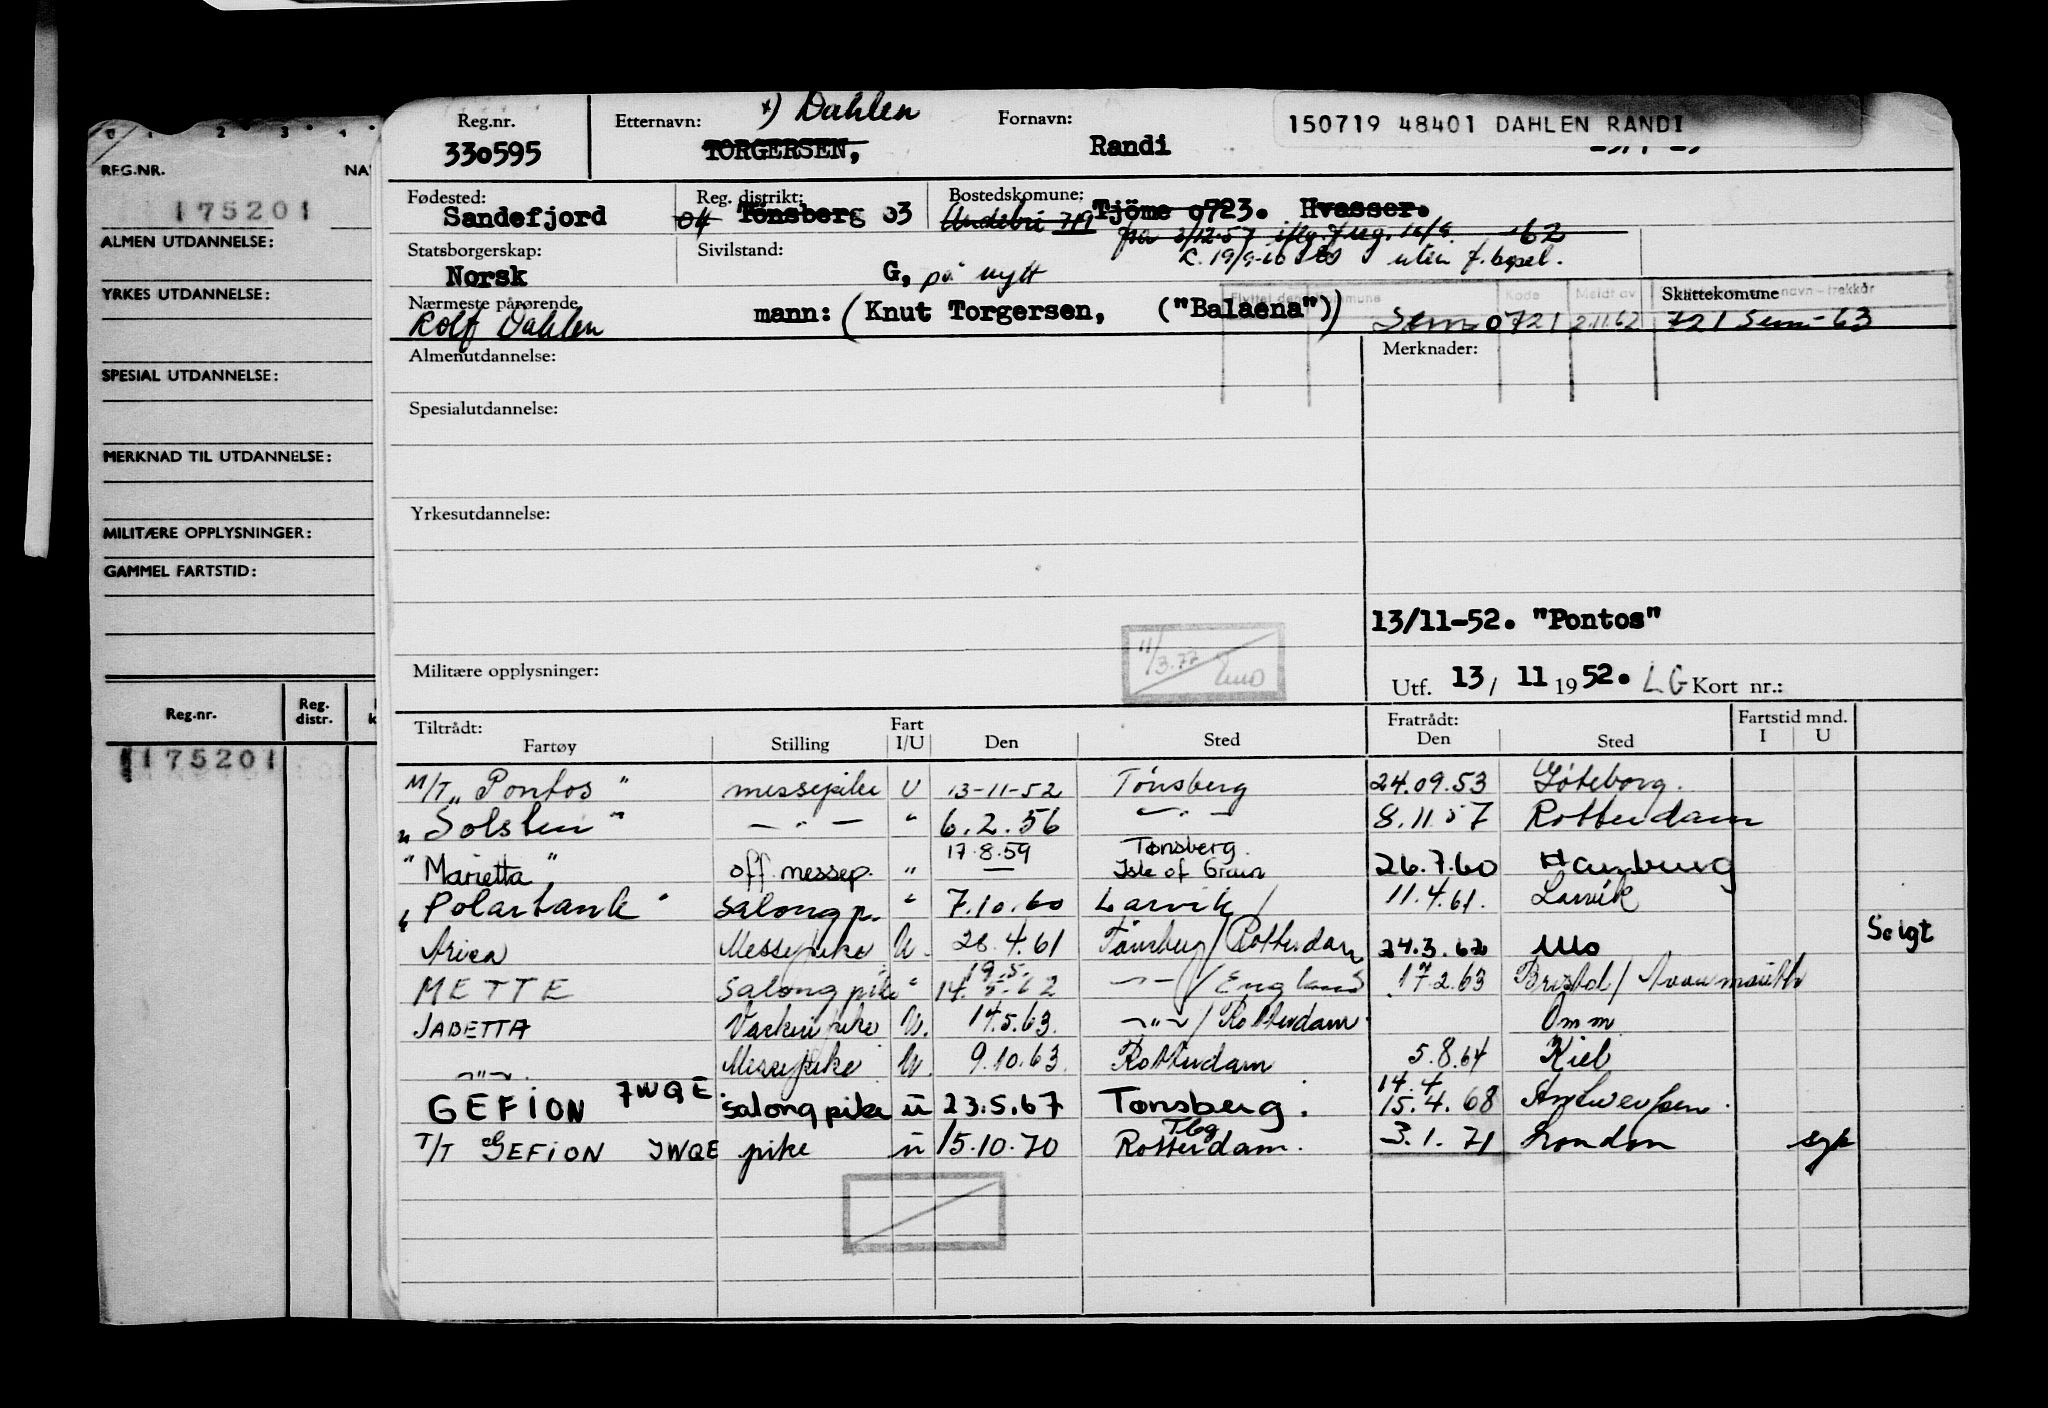 0 1 2 3 4
REG.NR. NA
175201
ALMEN UTDANNELSE:
YRKES UTDANNELSE:
SPESIAL UTDANNELSE:
MERKNAD TIL UTDANNELSE:
MILITÆRE OPPLYSNINGER:
GAMMEL FARTSTID:
Reg.nr. Reg. distr.
175201
Reg.nr. 330595
Etternavn: x) Dahlen
TORGERSEN,
Fornavn: Randi
150719 48401 DAHLEN RANDI
Fødested: Sandefjord
Reg. distrikt: 04 Tönsberg 03
Bostedskomune: Andebu 719 Tjöme 0723. Hvasser.
fra 3/12-57 62
uten f. bopel.
Statsborgerskap: Norsk
Sivilstand: G, på nytt
Flyttet den Kommune Kode Meldt av navn-trekkår
Skattekomune
Nærmeste pårørende mann: (Knut Torgersen, ("Balaena"))
Rolf Dahlen
Sem 0721 2.11.62 721 Sem-63
Almenutdannelse:
Merknader:
Spesialutdannelse:
Yrkesutdannelse:
13/11-52. "Pontos"
11/3.77
Militære opplysninger:
Utf. 13/ 11 1952. LG Kort nr.:
Tiltrådt: Fartøy Stilling Fart I/U Den Sted Fratrådt: Den Sted Fartstid mnd. I U
M/T „Pontos" messepike U 13-11-52 Tönsberg 24.09.53 Göteborg.
„ Solsten " — " — " 6.2.56 — " — 8.11.57 Rotterdam
" Marietta " off. messep. " 17.8.59 Tønsberg. Isle of Grain 26.7.60 Hamburg
„ Polartank " Salongp. " 7.10.60 Larvik / 11.4.61. Larvik
Arica Messepike U. 28.4.61 Tönsberg/Rotterdam 24.3.62 Mo Solgt
METTE Salongpike " 19.5. 14.5.62 —"—/England 17.2.63 Bristol/Avonmouth
JABETTA Vaskeripike U. 14.5.63. —"—/Rotterdam Omm
—"— Messepike U. 9.10.63. Rotterdam 5.8.64 Kiel
GEFION JWQE. salongpike u 23.5.67 Tønsberg. 14.4 15.4.68 Antwerpen.
T/T GEFION JWQE pike u 15.10.70 Tbg Rotterdam. 3.1.71 London syk